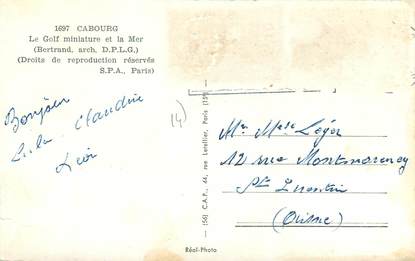 1697 CABOURG
Le Golf miniature et la Mer
(Bertrand, arch. D.P.L.G.)
(Droits de reproduction réservés
S.P.A., Paris)
Bonjour
Lulu Claudine
(4)
(56) C.A.P., 44, rue Letellier, Paris (15e)
Mr Mme Léger
12 rue Montmorency
St Quentin
(Aisne)
Réal-Photo